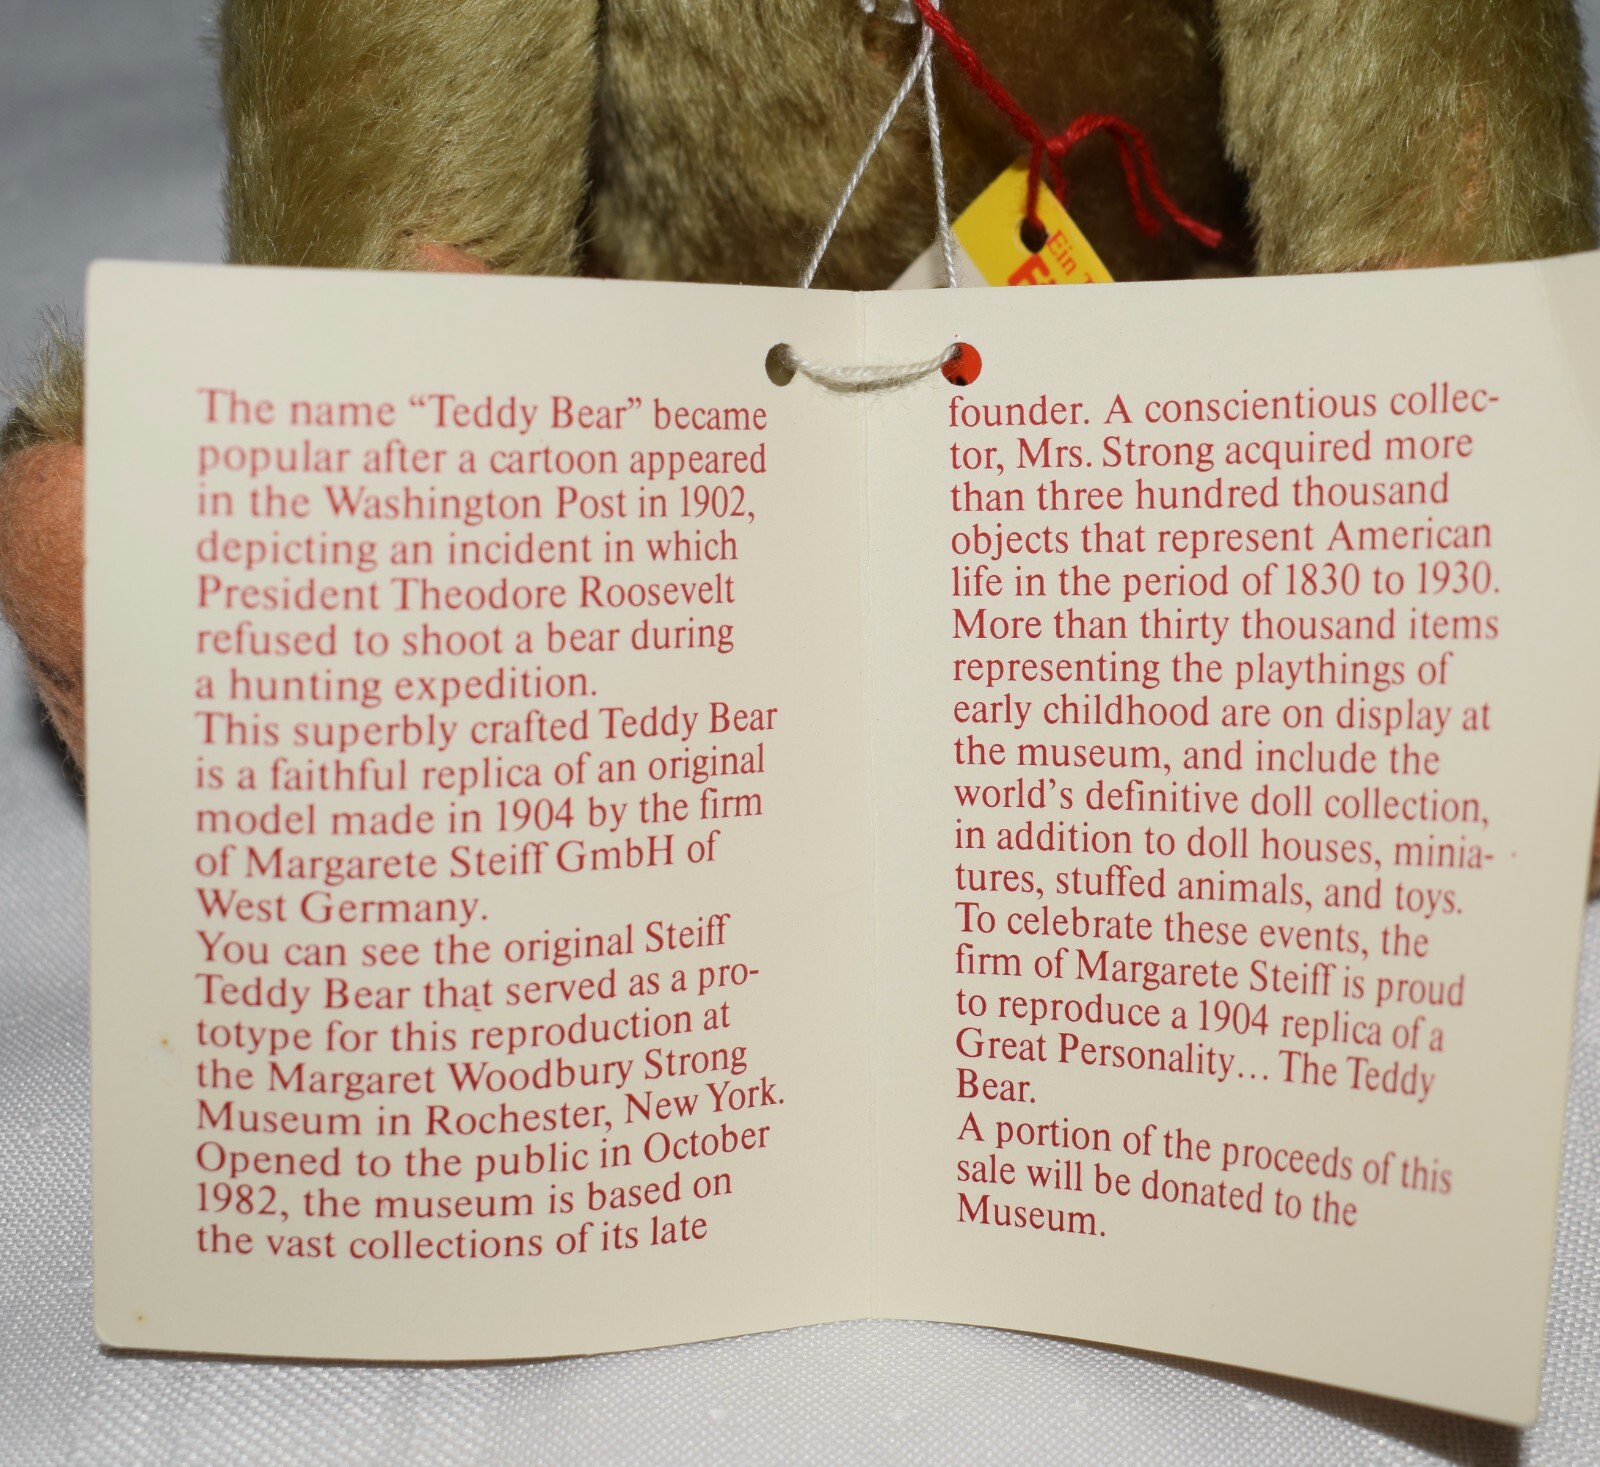 Ein
The name “Teddy Bear” became
popular after a cartoon appeared
in the Washington Post in 1902,
depicting an incident in which
President Theodore Roosevelt
refused to shoot a bear during
a hunting expedition.
This superbly crafted Teddy Bear
is a faithful replica of an original
model made in 1904 by the firm
of Margarete Steiff GmbH of
West Germany.
You can see the original Steiff
Teddy Bear that served as a pro-
totype for this reproduction at
the Margaret Woodbury Strong
Museum in Rochester, New York.
Opened to the public in October
1982, the museum is based on
the vast collections of its late
founder. A conscientious collec-
tor, Mrs. Strong acquired more
than three hundred thousand
objects that represent American
life in the period of 1830 to 1930.
More than thirty thousand items
representing the playthings of
early childhood are on display at
the museum, and include the
world’s definitive doll collection,
in addition to doll houses, minia-
tures, stuffed animals, and toys.
To celebrate these events, the
firm of Margarete Steiff is proud
to reproduce a 1904 replica of a
Great Personality... The Teddy
Bear.
A portion of the proceeds of this
sale will be donated to the
Museum.